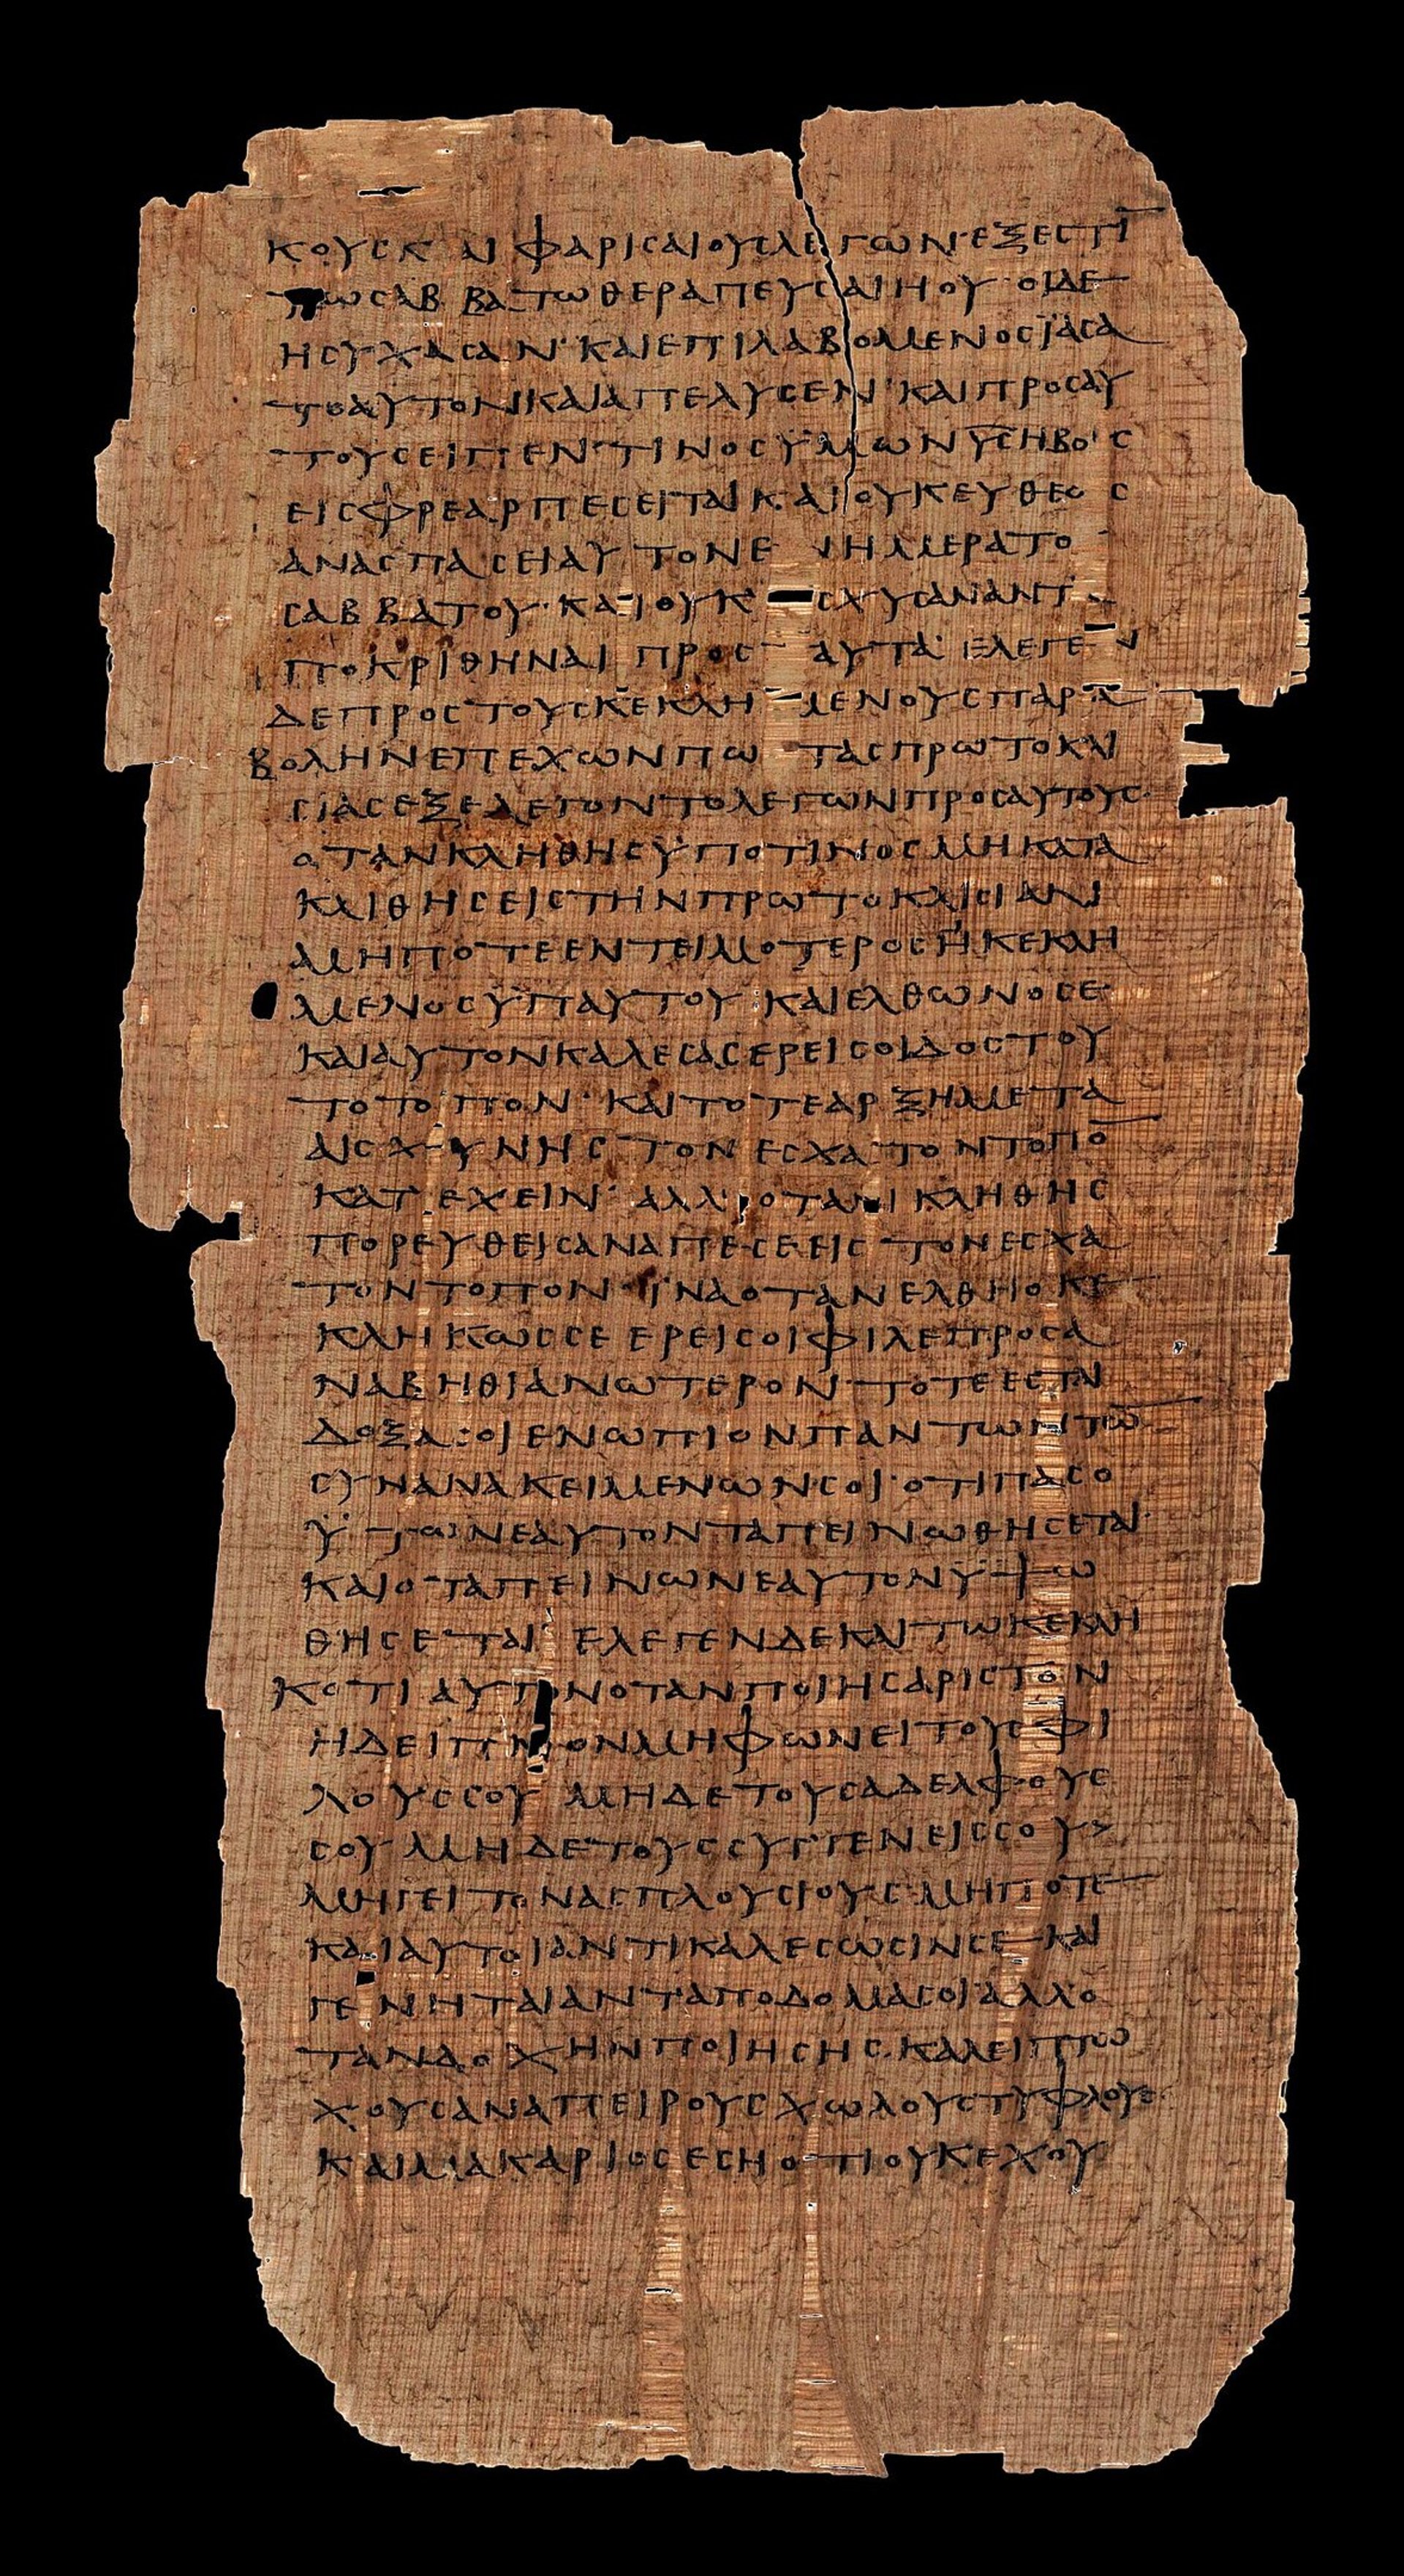 ΚΟΥΣ ΚΑΙ ΦΑΡΙΣΑΙΟΥΣ ΛΕΓΩΝ· ΕΞΕΣΤΙ̅
ΤΩ ΣΑΒΒΑΤΩ ΘΕΡΑΠΕΥΣΑΙ Η ΟΥ· ΟΙ ΔΕ
ΗΣΥΧΑΣΑΝ· ΚΑΙ ΕΠΙΛΑΒΟΜΕΝΟΣ ΪΑΣΑ
ΤΟ ΑΥΤΟΝ ΚΑΙ ΑΠΕΛΥΣΕΝ· ΚΑΙ ΠΡΟΣ ΑΥ
ΤΟΥΣ ΕΙΠΕΝ· ΤΙΝΟΣ ΫΜΩΝ Υ̅Σ̅ Η ΒΟΥΣ
ΕΙΣ ΦΡΕΑΡ ΠΕΣΕΙΤΑΙ ΚΑΙ ΟΥΚ ΕΥΘΕΩΣ
ΑΝΑΣΠΑΣΕΙ ΑΥΤΟΝ ΕΝ ΗΜΕΡΑ ΤΟ
ΣΑΒΒΑΤΟΥ· ΚΑΙ ΟΥΚ ΙΣΧΥΣΑΝ ΑΝΤ
ΠΟΚΡΙΘΗΝΑΙ ΠΡΟΣ ΑΥΤΑ· ΕΛΕΓΕΝ
ΔΕ ΠΡΟΣ ΤΟΥΣ ΚΕΚΛΗΜΕΝΟΥΣ ΠΑΡΑ
ΒΟΛΗΝ ΕΠΕΧΩΝ ΠΩ ΤΑΣ ΠΡΩΤΟΚΛΙ
ΣΙΑΣ ΕΞΕΛΕΓΟΝΤΟ ΛΕΓΩΝ ΠΡΟΣ ΑΥΤΟΥΣ·
ΟΤΑΝ ΚΛΗΘΗΣ ΫΠΟ ΤΙΝΟΣ ΜΗ ΚΑΤΑ
ΚΛΙΘΗΣ ΕΙΣ ΤΗΝ ΠΡΩΤΟΚΛΙΣΙΑΝ
ΜΗΠΟΤΕ ΕΝΤΕΙΜΟΤΕΡΟΣ Η ΚΕΚΛΗ
ΜΕΝΟΣ ΫΠ ΑΥΤΟΥ ΚΑΙ ΕΛΘΩΝ Ο ΣΕ
ΚΑΙ ΑΥΤΟΝ ΚΑΛΕΣΑΣ ΕΡΕΙ ΣΟΙ ΔΟΣ ΤΟΥ
ΤΟ ΤΟΠΟΝ· ΚΑΙ ΤΟΤΕ ΑΡΞΗ ΜΕΤΑ
ΑΙΣΧΥΝΗΣ ΤΟΝ ΕΣΧΑΤΟΝ ΤΟΠΟ̅
ΚΑΤΕΧΕΙΝ· ΑΛΛ ΟΤΑΝ ΚΛΗΘΗΣ
ΠΟΡΕΥΘΕΙΣ ΑΝΑΠΕΣΕ ΕΙΣ ΤΟΝ ΕΣΧΑ
ΤΟΝ ΤΟΠΟΝ· ΪΝΑ ΟΤΑΝ ΕΛΘΗ Ο ΚΕ
ΚΛΗΚΩΣ ΣΕ ΕΡΕΙ ΣΟΙ ΦΙΛΕ ΠΡΟΣΑ
ΝΑΒΗΘΙ ΑΝΩΤΕΡΟΝ· ΤΟΤΕ ΕΣΤΑΙ
ΔΟΞΑ ΣΟΙ ΕΝΩΠΙΟΝ ΠΑΝΤΩΝ ΤΩ̅
ΣΥΝΑΝΑΚΕΙΜΕΝΩΝ ΣΟΙ· ΟΤΙ ΠΑΣ Ο
ΫΨΩΝ ΕΑΥΤΟΝ ΤΑΠΕΙΝΩΘΗΣΕΤΑΙ·
ΚΑΙ Ο ΤΑΠΕΙΝΩΝ ΕΑΥΤΟΝ ΫΨΩ
ΘΗΣΕΤΑΙ· ΕΛΕΓΕΝ ΔΕ ΚΑΙ ΤΩ ΚΕΚΛΗ
ΚΟΤΙ ΑΥΤΟΝ ΟΤΑΝ ΠΟΙΗΣ ΑΡΙΣΤΟΝ
Η ΔΕΙΠΝΟΝ ΜΗ ΦΩΝΕΙ ΤΟΥΣ ΦΙ
ΛΟΥΣ ΣΟΥ ΜΗΔΕ ΤΟΥΣ ΑΔΕΛΦΟΥΣ
ΣΟΥ ΜΗΔΕ ΤΟΥΣ ΣΥΓΓΕΝΕΙΣ ΣΟΥ>
ΜΗ ΓΕΙΤΟΝΑΣ ΠΛΟΥΣΙΟΥΣ· ΜΗΠΟΤΕ
ΚΑΙ ΑΥΤΟΙ ΑΝΤΙΚΑΛΕΣΩΣΙΝ ΣΕ ΚΑΙ
ΓΕΝΗΤΑΙ ΑΝΤΑΠΟΔΟΜΑ ΣΟΙ ΑΛΛ Ο
ΤΑΝ ΔΟΧΗΝ ΠΟΙΗΣΗΣ· ΚΑΛΕΙ ΠΤΩ
ΧΟΥΣ ΑΝΑΠΕΙΡΟΥΣ ΧΩΛΟΥΣ ΤΥΦΛΟΥΣ
ΚΑΙ ΜΑΚΑΡΙΟΣ ΕΣΗ ΟΤΙ ΟΥΚ ΕΧΟΥ